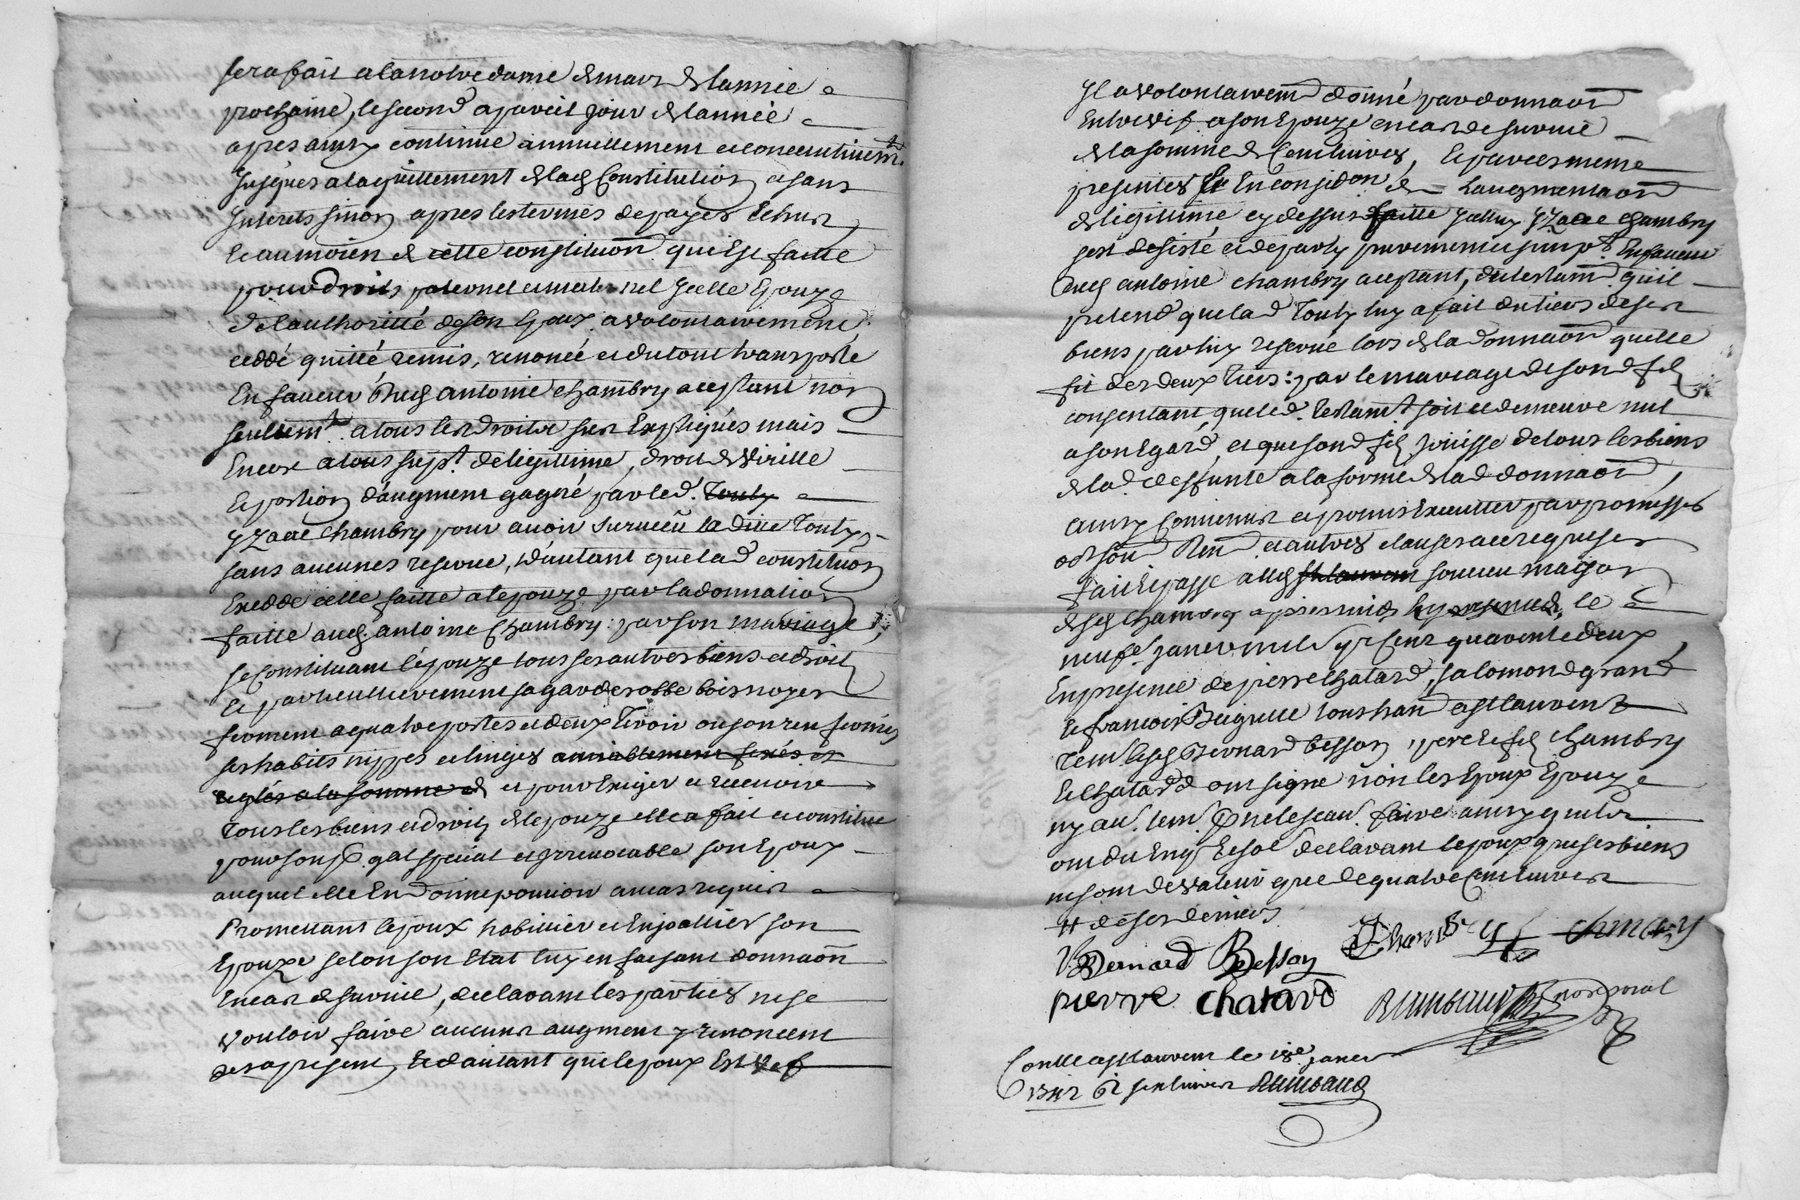 sera fait a la notre dame de mars de lannée
prochaine, le second a pareil jour de lannée
apres ainsy continué annuellement et consecutivemt.
jusques a laquittement de lad constitution et sans
interets sinon apres les termes de payes echus
Et au moien de cette constituon qui Est faitte
pour droits paternel et maternel jcelle Epouze
de lauthoritté de son Epoux a volontairement
ceddé quitté, remis, renoncé et du tout transporté
En faveur dud antoine chambry aceptant non
seullemt. a tous les droits sus Expliqués mais
Encore a tous supt. de legittime, droit de virille
Et portion daugment gagné par led. Touly
yzaac chambry pour avoir survecu la ditte Touly
sans aucunes reserve, dautant que lad constituon
Excedde celle faitte a lepouze par la donnation
faitte aud. antoine Chambry par son mariage,
se Constituant lépouze tous ses autres biens et droits
Et particullierement sa garderobbe bois noyer
ferment a quatre portes et deux Tiroir ou son renfermés
ses habits nippes et linges amiablement fixés et
reglés a la somme de et pour Exiger et recevoir
tous les biens et droits de lepouze elle a fait et constitué
pour son p. gal special et irrevocable son Epoux
auquel elle En donne pouvoir a meas requis
Promettant lepoux habillier et Enjoallier son
Epouze selon son Etat luy en faisant donnaon
En cas de survie, declarant les parties ne se
vouloir faire aucuns augment y renoncent
des a present, Et dautant que lepoux Est vef
Jl a volontairemt donné par donnaon
Entre vif a son Epouze en cas de survie
de la somme de Cent livres, Et par ces meme
presentes En considon de Laugmentaon
de legittime cy dessus faitte jcelluy yzaac chambry
sest desisté et departy purement et simpt. En faveur
dud antoine chambry aceptant, du testamt quil
pretend que lad Touly luy a fait du tiers de ses
biens par luy reservé lors de la donnaon quelle
fit des deux tiers par le mariage de sond fils
consentant que led. testamt soit et demeure nul
a son Egard, et que sond fils jouisse de tous les biens
de lad. deffunte a la forme de lad donnaon,
ainsy Convenus et promis Executter par promesses
obon Ren. et autres clauses a ce requises
fait et passé aud St laurent maison
desd Chambry apres midy le
neufe. janvier mil sept Cent quarente deux
En presence de pierre Chatard, salomon degrand
Et francois Beignete tous hand a St laurent
tem. lesd Bernard besson, pere et fils Chambry
Et Chatard ont signé non les Epoux Epouze
ny au. tem. p ne le scau. faire ainsy quils
ont dit Enq. Et sol declarant lepoux que ses biens
ne sont de valeur que de quatre Cent livres
de ses deniers
Bernard Besson Chambry yf chambry
pierre Chatard Rimbaud
Conlle a St laurent le 18e janer
1742 six livres Rimbaud